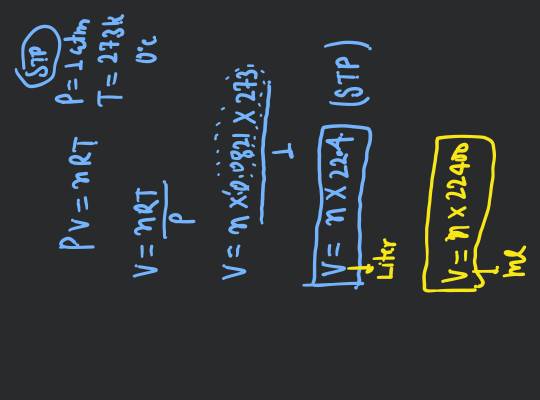 STP
P = 1 atm
T = 273k
0°c
PV = nRT
V = nRT
P
V = n x 0.0821 x 273
1
V = n x 22.4 (STP)
Liter
V = n x 22400
ml